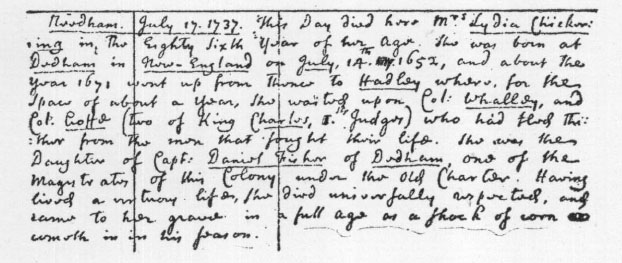 Needham. July 17. 1737. This Day died here Mrs Lydia Chicker:
:ing in the Eighty Sixth Year of her Age. She was born at
Dedham in New-England on July, 14th 1652, and about the
Year 1671 went up from thence to Hadley where, for the
space of about a Year, she waited upon Col: Whalley, and
Col: Goffe (two of King Charles, 1.st Judges) who had fled thi:
:ther from the men that sought their life. She was the
Daughter of Capt: Daniel Fisher of Dedham, one of the
Magistrates of this Colony under the old Charter. Having
lived a vertuous life, she died universally respected, and
came to her grave in a full age as a shock of corn
cometh in in his season.